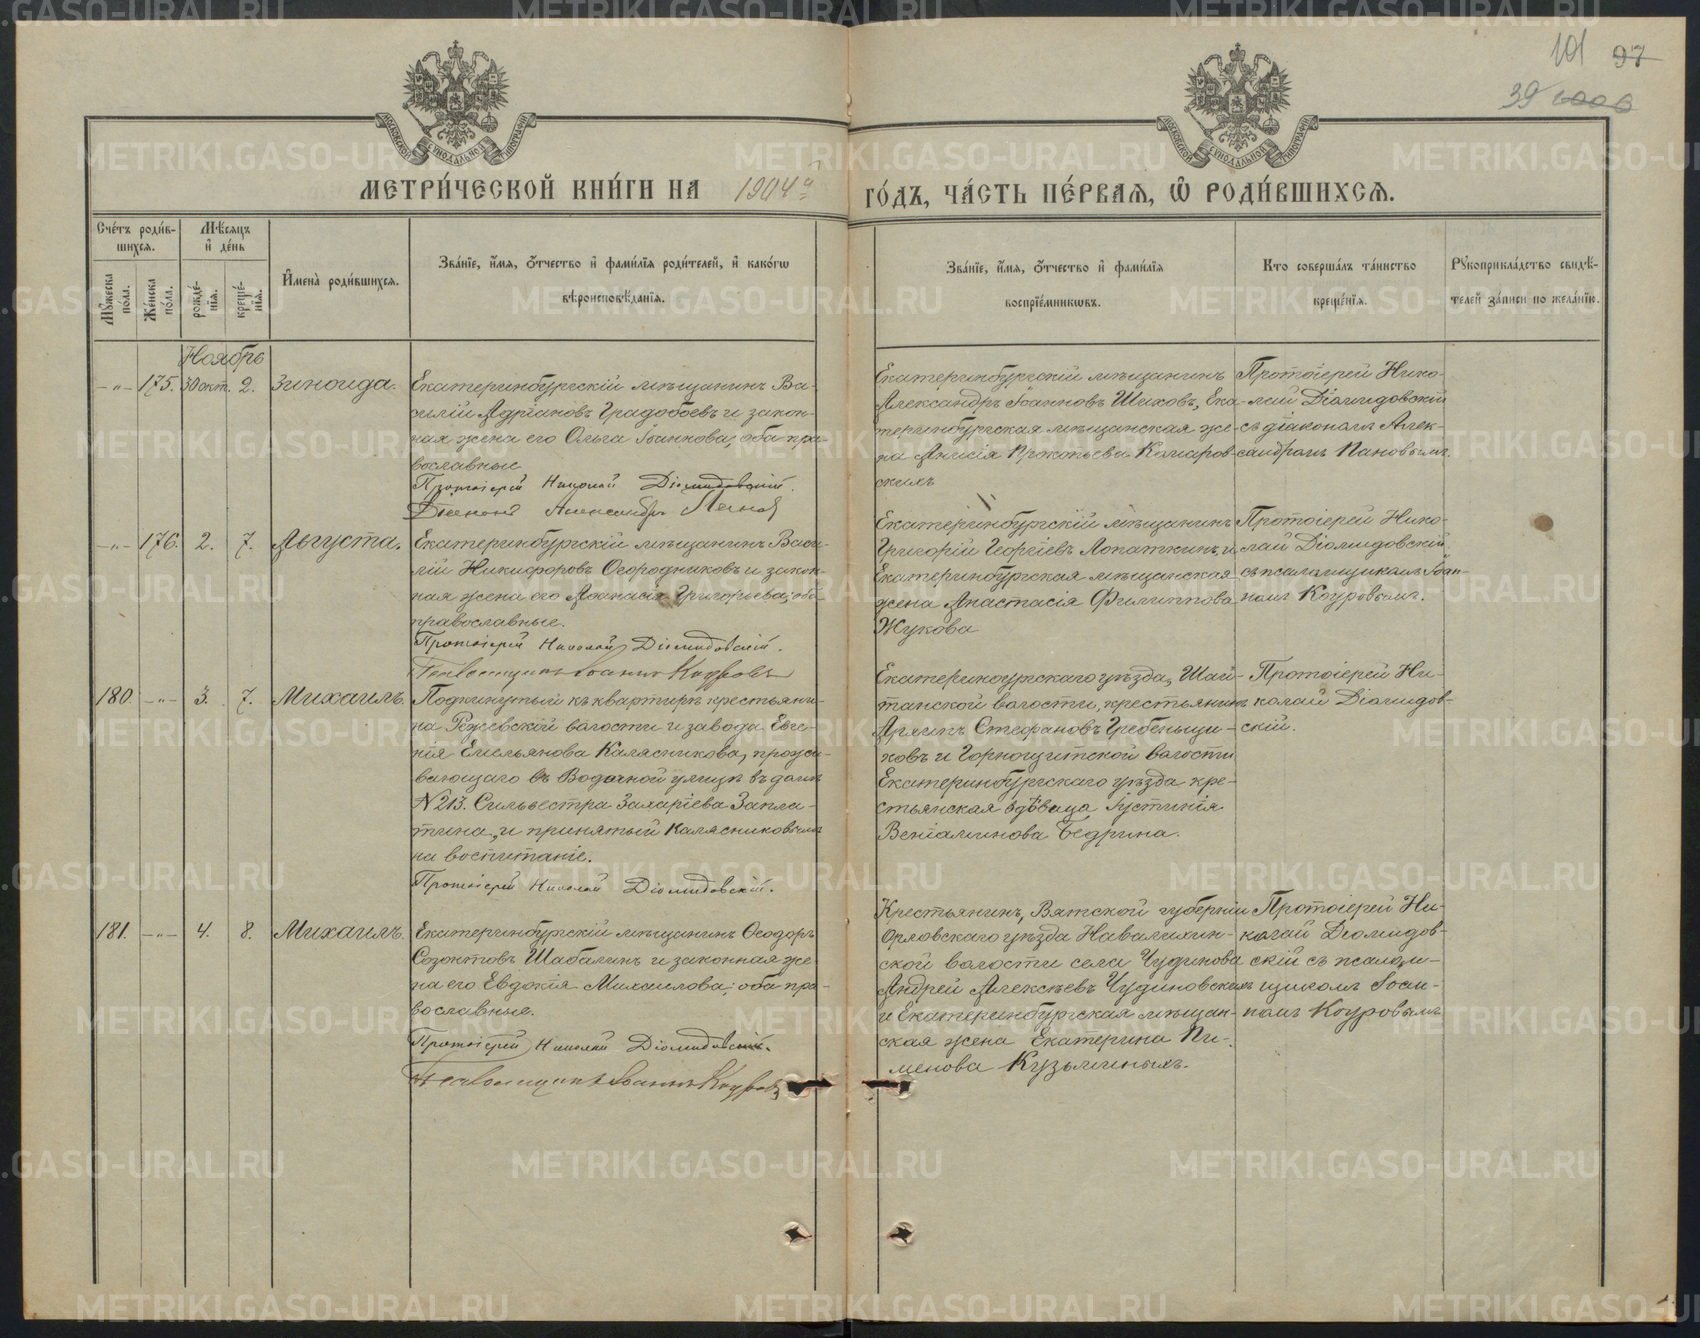 101 97
39
МЕТРИ́ЧЕСКОЙ КНИ́ГИ НА 1904й ГО́ДЪ, ЧА́СТЬ ПЕ́РВАѦ, Ѡ҆ РОДИ́ВШИХСѦ.
Сче́тъ роди́в-
шихсѧ.
Мꙋ́жеска
по́ла.
Же́нска
по́ла.
Мѣ́сѧцъ
и҆ де́нь
рожде́-
нїѧ.
креще́-
нїѧ.
И҆мена̀ роди́вшихсѧ.
Зва́нїе, и҆́мѧ, ѻ҆́тчество и҆ фами́лїѧ роди́телей, и҆ како́гѡ
вѣроисповѣ́данїѧ.
Зва́нїе, и҆́мѧ, ѻ҆́тчество и҆ фами́лїѧ
воспрїе́мникѡвъ.
Кто соверша́лъ та́инство
креще́нїѧ.
Рꙋкоприкла́дство свидѣ́-
телей за́писи по жела́нїю.
Ноябрь
-"- 175. 30 окт. 2. Зиноида.
Екатеринбургскій мѣщанинъ Ва-
силій Адріановъ Градобоевъ и закон-
ная жена его Ольга Іоаннова, оба пра-
вославные
Протоіерей Николай Діомидовскій.
Діаконъ Александръ Пановъ
Екатеринбургскій мѣщанинъ
Александръ Іоанновъ Шиховъ, Ека-
теринбургская мѣщанская же-
на Анисія Прокопьева Комаров-
скихъ
Протоіерей Нико-
лай Діомидовскій
съ діакономъ Алек-
сандромъ Пановымъ.
-"- 176. 2. 7. Августа.
Екатеринбургскій мѣщанинъ Васи-
лій Никифоровъ Огородниковъ и закон-
ная жена его Аѳанасія Григорьева; оба
православные.
Протоіерей Николай Діомидовскій.
Псаломщикъ Іоаннъ Коуровъ
Екатеринбургскій мѣщанинъ
Григорій Георгіевъ Лопаткинъ и
Екатеринбургская мѣщанская
жена Анастасія Филиппова
Жукова
Протоіерей Нико-
лай Діомидовскій
съ псаломщикомъ Іоан-
номъ Коуровымъ.
180. -"- 3. 7. Михаилъ.
Подкинутый къ квартирѣ крестьяни-
на Режевской волости и завода Евге-
нія Емельянова Калясникова, прожи-
вающаго въ Водочной улицѣ въ домѣ
№ 213. Сильвестра Захаріева Запла-
тина, и принятый Калясниковымъ
на воспитаніе.
Протоіерей Николай Діомидовскій.
Екатеринбургскаго уѣзда, Шай-
танской волости, крестьянинъ
Стефановъ Гребеньщи-
ковъ и Горнощитской волости
Екатеринбургскаго уѣзда кре-
стьянская вдовица Іустинія
Веніаминова Бедрина.
Протоіерей Ни-
колай Діомидов-
скій.
181. -"- 4. 8. Михаилъ.
Екатеринбургскій мѣщанинъ Ѳеодоръ
Созонтовъ Шабалинъ и законная же-
на его Евдокія Михаилова; оба пра-
вославные.
Протоіерей Николай Діомидовскій.
Псаломщикъ Іоаннъ Коуровъ
Крестьянинъ, Вятской губерніи
Орловскаго уѣзда Навалихин-
ской волости села Чудинова
Андрей Алексѣевъ Чудиновскихъ
и Екатеринбургская мѣщан-
ская жена Екатерина Пи-
менова Кузьминыхъ.
Протоіерей Ни-
колай Діомидов-
скій съ псалом-
щикомъ Іоан-
номъ Коуровымъ